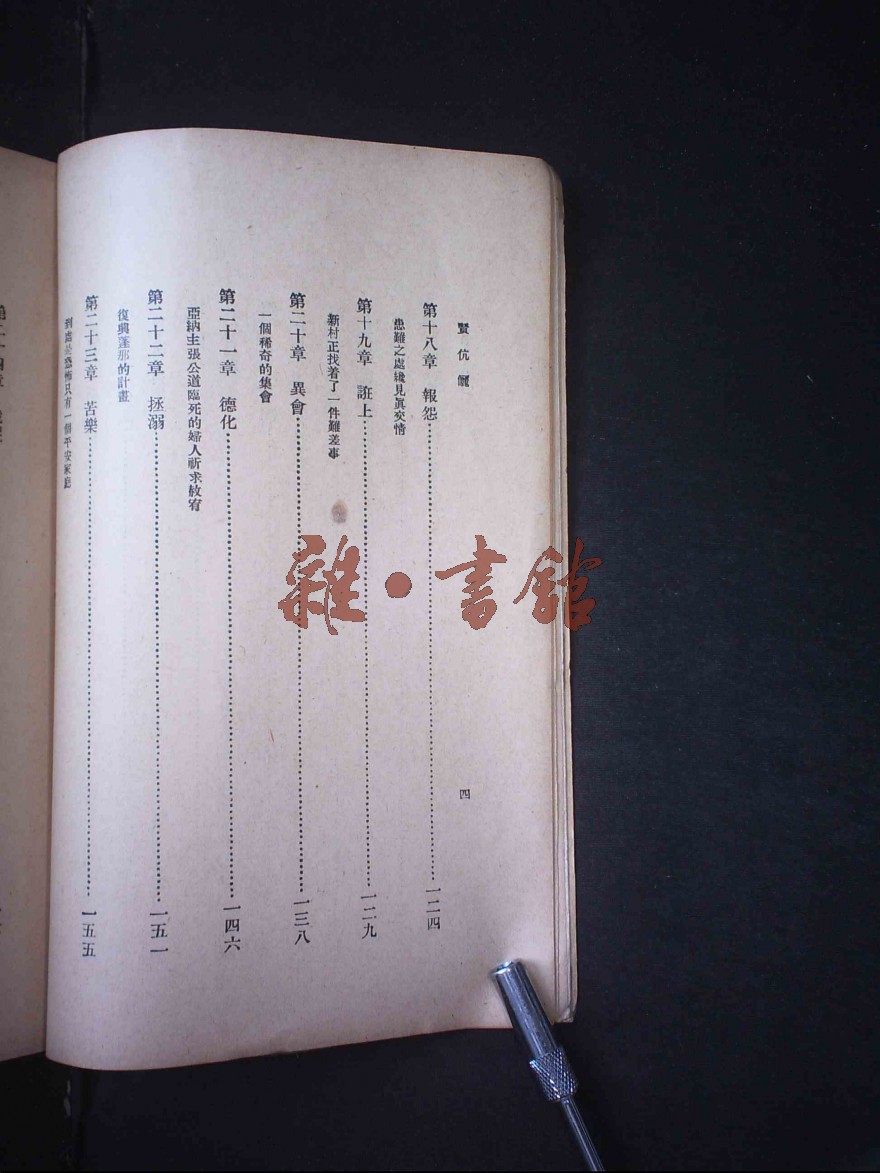 賢伉儷
四
第十八章　報怨……一二四
患難之處纔見眞交情
第十九章　誑上……一二九
新村正找着了一件難差事
第二十章　異會……一三八
一個稀奇的集會
第二十一章　德化……一四六
亞納主張公道臨死的婦人祈求赦宥
第二十二章　拯溺……一五一
復興蓬那的計畫
第二十三章　苦樂……一五五
到處是恐怖只有一個平安家庭
雜·書館